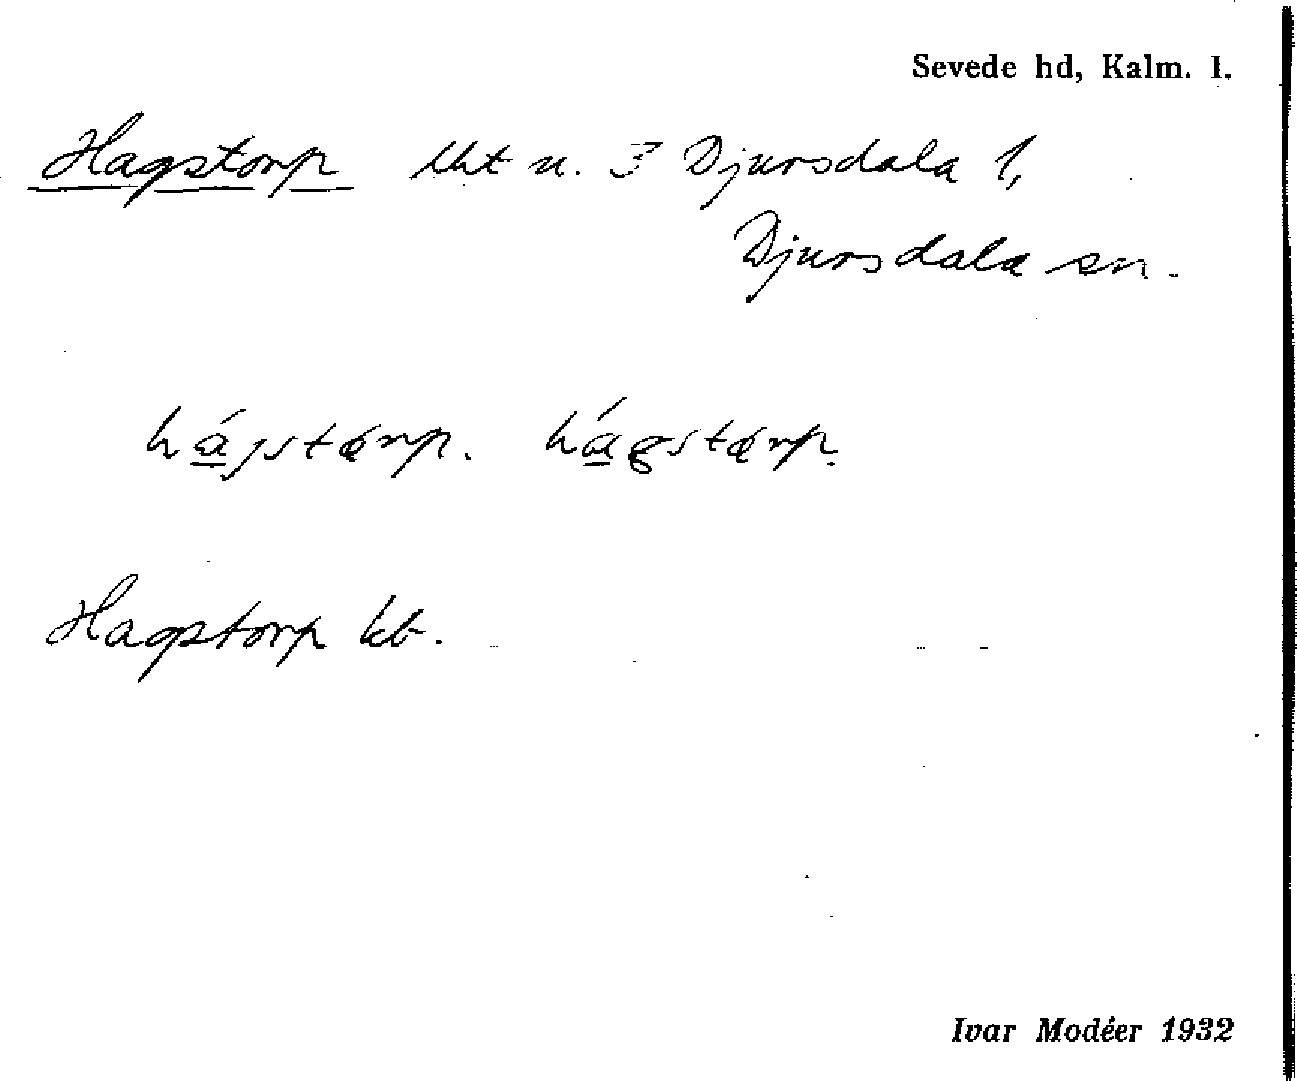 Sevede hd, Kalm. l.
Hagstorp lht u. 3 Djursdala 1,
Djursdala sn.
hágstórp. hágstórp.
Hagstorp kb.
Ivar Modéer 1932